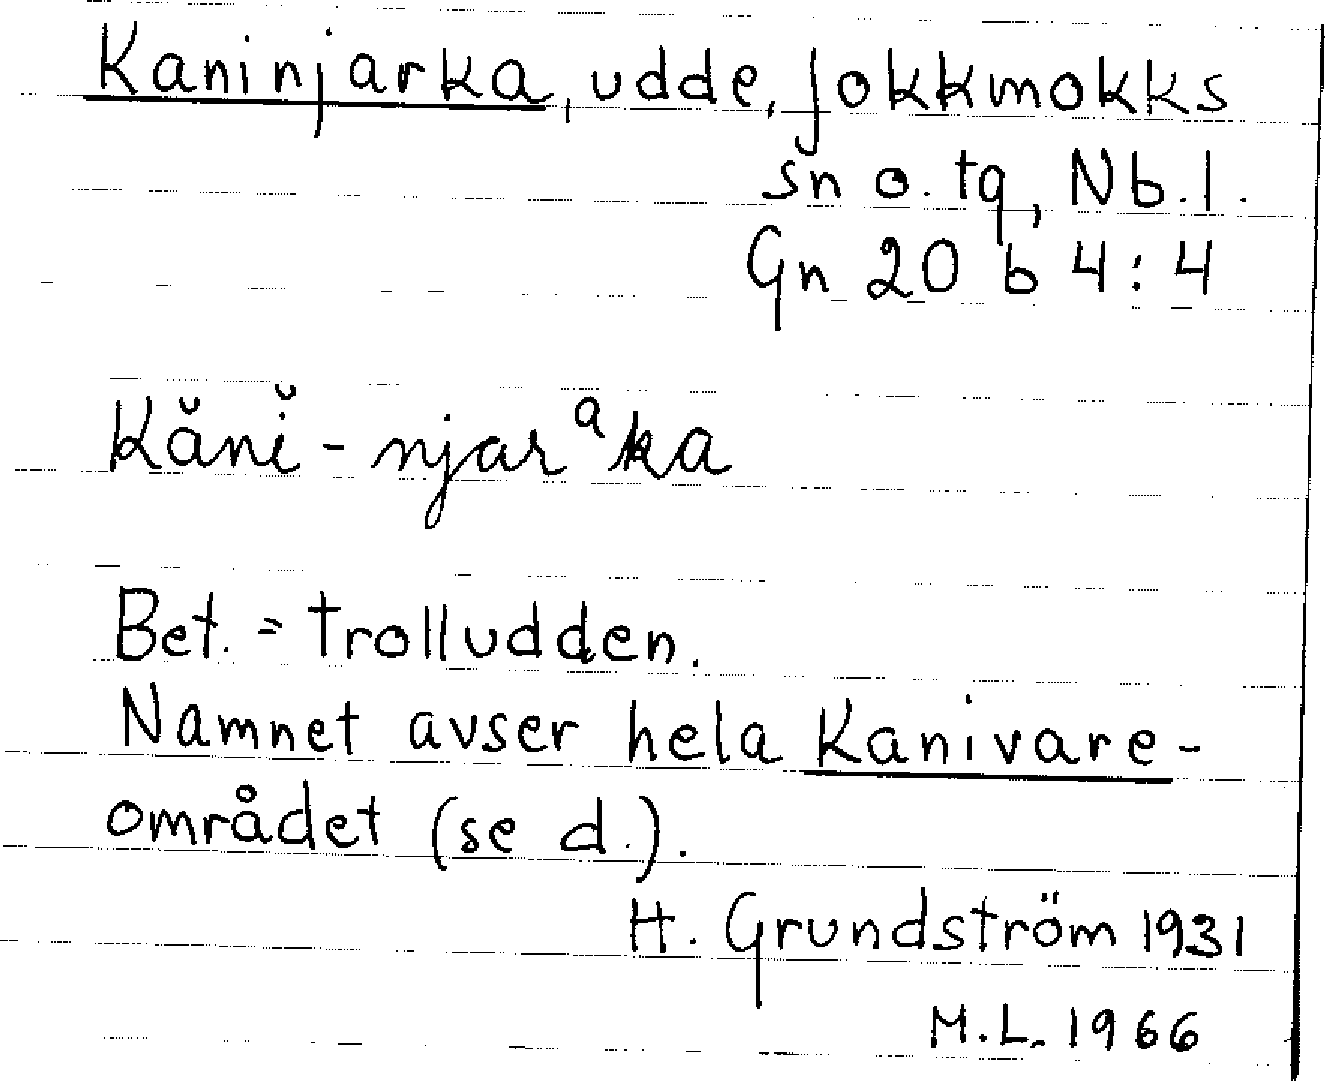 Kaninjarka, udde, Jokkmokks
sn o. tg, Nb. l.
Gn 20 b 4:4
Kănĭ - njarᵃka
Bet. = trolludden.
Namnet avser hela Kanivare-
området (se d.).
H. Grundström 1931
M.L. 1966